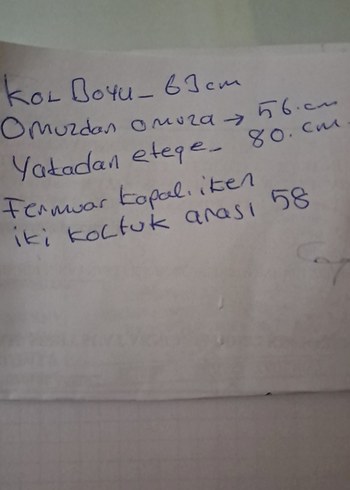 KOL Boyu - 63 cm
Omuzdan omuza → 56.cm
Yakadan etege - 80.cm.
Fermuar kapalı.iken
iki koltuk arası 58